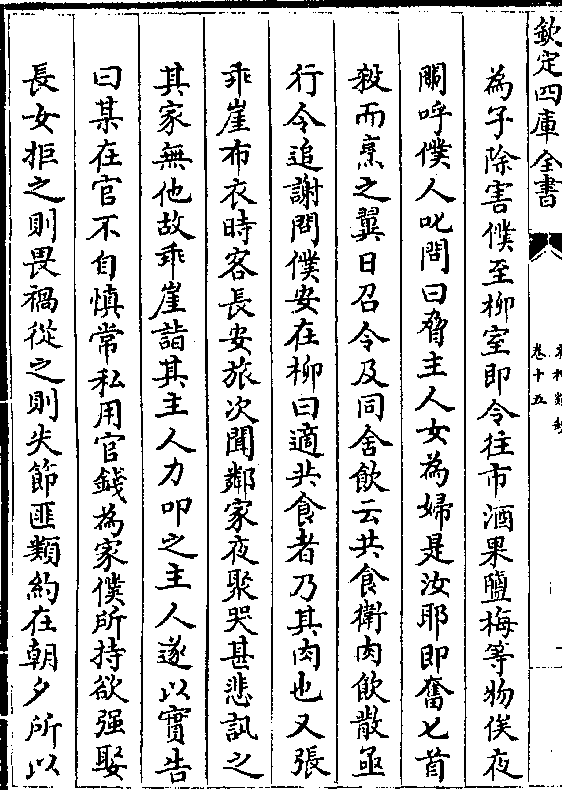 欽定四庫全書
卷十五
為予除害僕至柳室即令往市酒果鹽梅等物俟夜
關呼僕人叱問曰脅主人女為婦是汝耶即奮匕首
殺而烹之翼日召令及同舍飲云共食衛肉飲散亟
行令追謝問僕安在柳曰適共食者乃其肉也又張
乖崖布衣時客長安旅次聞鄰家夜聚哭甚悲訊之
其家無他故乖崖詣其主人力叩之主人遂以實告
曰某在官不自慎常私用官錢為家僕所持欲强娶
長女拒之則畏禍從之則失節匪類約在朝夕所以